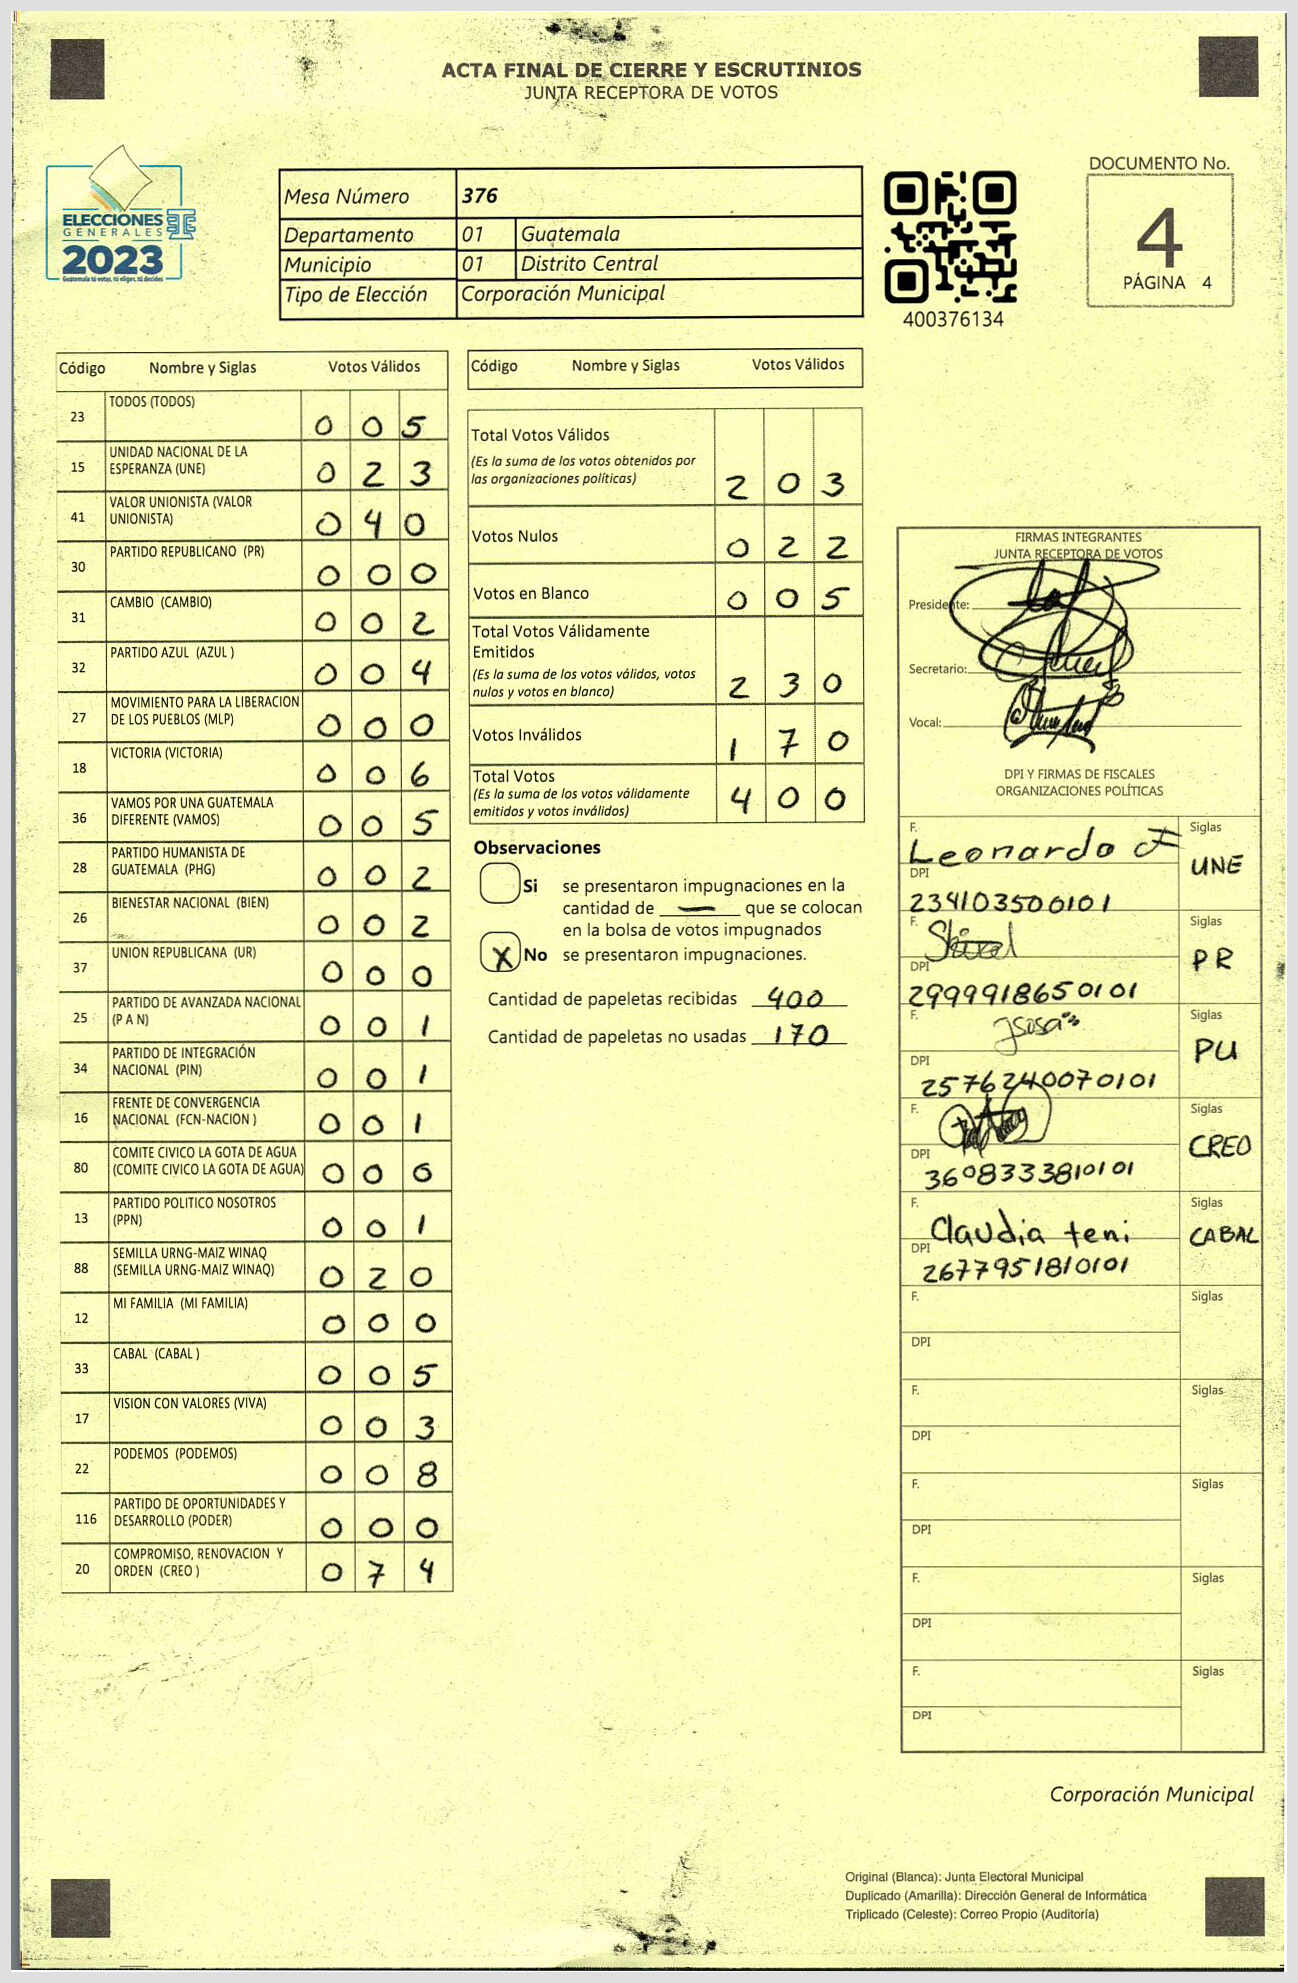 ACTA FINAL DE CIERRE Y ESCRUTINIOS
JUNTA RECEPTORA DE VOTOS
ELECCIONES
GENERALES
2023
Guatemala tú votas, tú eliges, tú decides
Mesa Número 376
Departamento 01 Guatemala
Municipio 01 Distrito Central
Tipo de Elección Corporación Municipal
400376134
DOCUMENTO No.
4
PÁGINA 4
Código Nombre y Siglas Votos Válidos
23 TODOS (TODOS) 0 0 5
15 UNIDAD NACIONAL DE LA ESPERANZA (UNE) 0 2 3
41 VALOR UNIONISTA (VALOR UNIONISTA) 0 4 0
30 PARTIDO REPUBLICANO (PR) 0 0 0
31 CAMBIO (CAMBIO) 0 0 2
32 PARTIDO AZUL (AZUL ) 0 0 4
27 MOVIMIENTO PARA LA LIBERACION DE LOS PUEBLOS (MLP) 0 0 0
18 VICTORIA (VICTORIA) 0 0 6
36 VAMOS POR UNA GUATEMALA DIFERENTE (VAMOS) 0 0 5
28 PARTIDO HUMANISTA DE GUATEMALA (PHG) 0 0 2
26 BIENESTAR NACIONAL (BIEN) 0 0 2
37 UNION REPUBLICANA (UR) 0 0 0
25 PARTIDO DE AVANZADA NACIONAL (P A N) 0 0 1
34 PARTIDO DE INTEGRACIÓN NACIONAL (PIN) 0 0 1
16 FRENTE DE CONVERGENCIA NACIONAL (FCN-NACION ) 0 0 1
80 COMITE CIVICO LA GOTA DE AGUA (COMITE CIVICO LA GOTA DE AGUA) 0 0 0
13 PARTIDO POLITICO NOSOTROS (PPN) 0 0 1
88 SEMILLA URNG-MAIZ WINAQ (SEMILLA URNG-MAIZ WINAQ) 0 2 0
12 MI FAMILIA (MI FAMILIA) 0 0 0
33 CABAL (CABAL ) 0 0 5
17 VISION CON VALORES (VIVA) 0 0 3
22 PODEMOS (PODEMOS) 0 0 8
116 PARTIDO DE OPORTUNIDADES Y DESARROLLO (PODER) 0 0 0
20 COMPROMISO, RENOVACION Y ORDEN (CREO ) 0 7 4
Código Nombre y Siglas Votos Válidos
Total Votos Válidos
(Es la suma de los votos obtenidos por
las organizaciones políticas) 2 0 3
Votos Nulos 0 2 2
Votos en Blanco 0 0 5
Total Votos Válidamente
Emitidos
(Es la suma de los votos válidos, votos
nulos y votos en blanco) 2 3 0
Votos Inválidos 1 7 0
Total Votos
(Es la suma de los votos válidamente
emitidos y votos inválidos) 4 0 0
Observaciones
Si se presentaron impugnaciones en la
cantidad de — que se colocan
en la bolsa de votos impugnados
X No se presentaron impugnaciones.
Cantidad de papeletas recibidas 400
Cantidad de papeletas no usadas 170
FIRMAS INTEGRANTES
JUNTA RECEPTORA DE VOTOS
Presidente:
Secretario:
Vocal:
DPI Y FIRMAS DE FISCALES
ORGANIZACIONES POLÍTICAS
F. Leonardo Siglas UNE
DPI 234103500101
F. Siglas PR
DPI 2999918650101
F. Jsosa Siglas PU
DPI 2576240070101
F. Siglas CREO
DPI 3608333810101
F. Claudia teni Siglas CABAL
DPI 2677951810101
F. Siglas
DPI
F. Siglas
DPI
F. Siglas
DPI
F. Siglas
DPI
F. Siglas
DPI
Corporación Municipal
Original (Blanca): Junta Electoral Municipal
Duplicado (Amarilla): Dirección General de Informática
Triplicado (Celeste): Correo Propio (Auditoría)